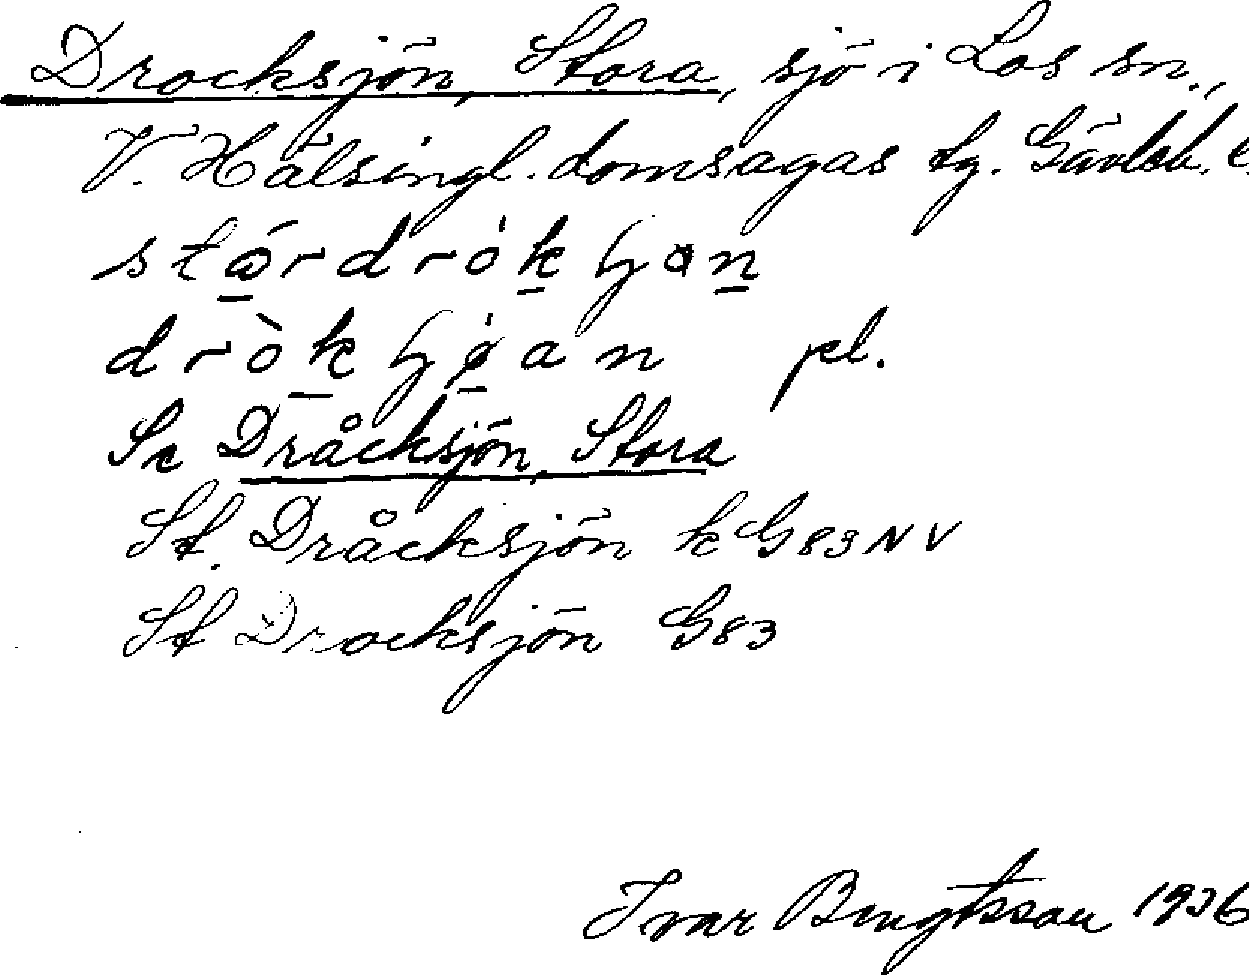 Drocksjön, Stora, sjö i Los sn.,
V. Hälsingl. domsagas tg. Gävleb. l.
Se Dråcksjön, Stora
St. Dråcksjön k G83NV
St Drocksjön G83
pl.
Ivar Bengtsson 1936